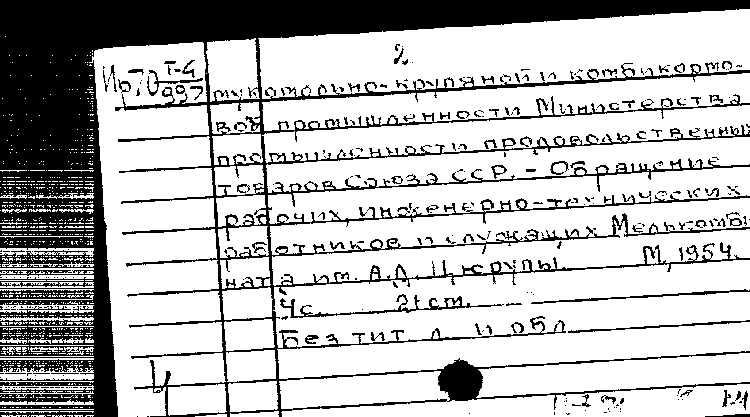 2.
Ир70 Т-4/997 мукомольно-крупяной и комбикормо-
вой промышленности Министерства
промышленности продовольственных
товаров Союза ССР. - Обращение
рабочих, инженерно-технических
работников и служащих Мелькомби
ната им. А.Д. Цюрупы. М, 1954.
4с. 21 см.
Без тит. л. и обл